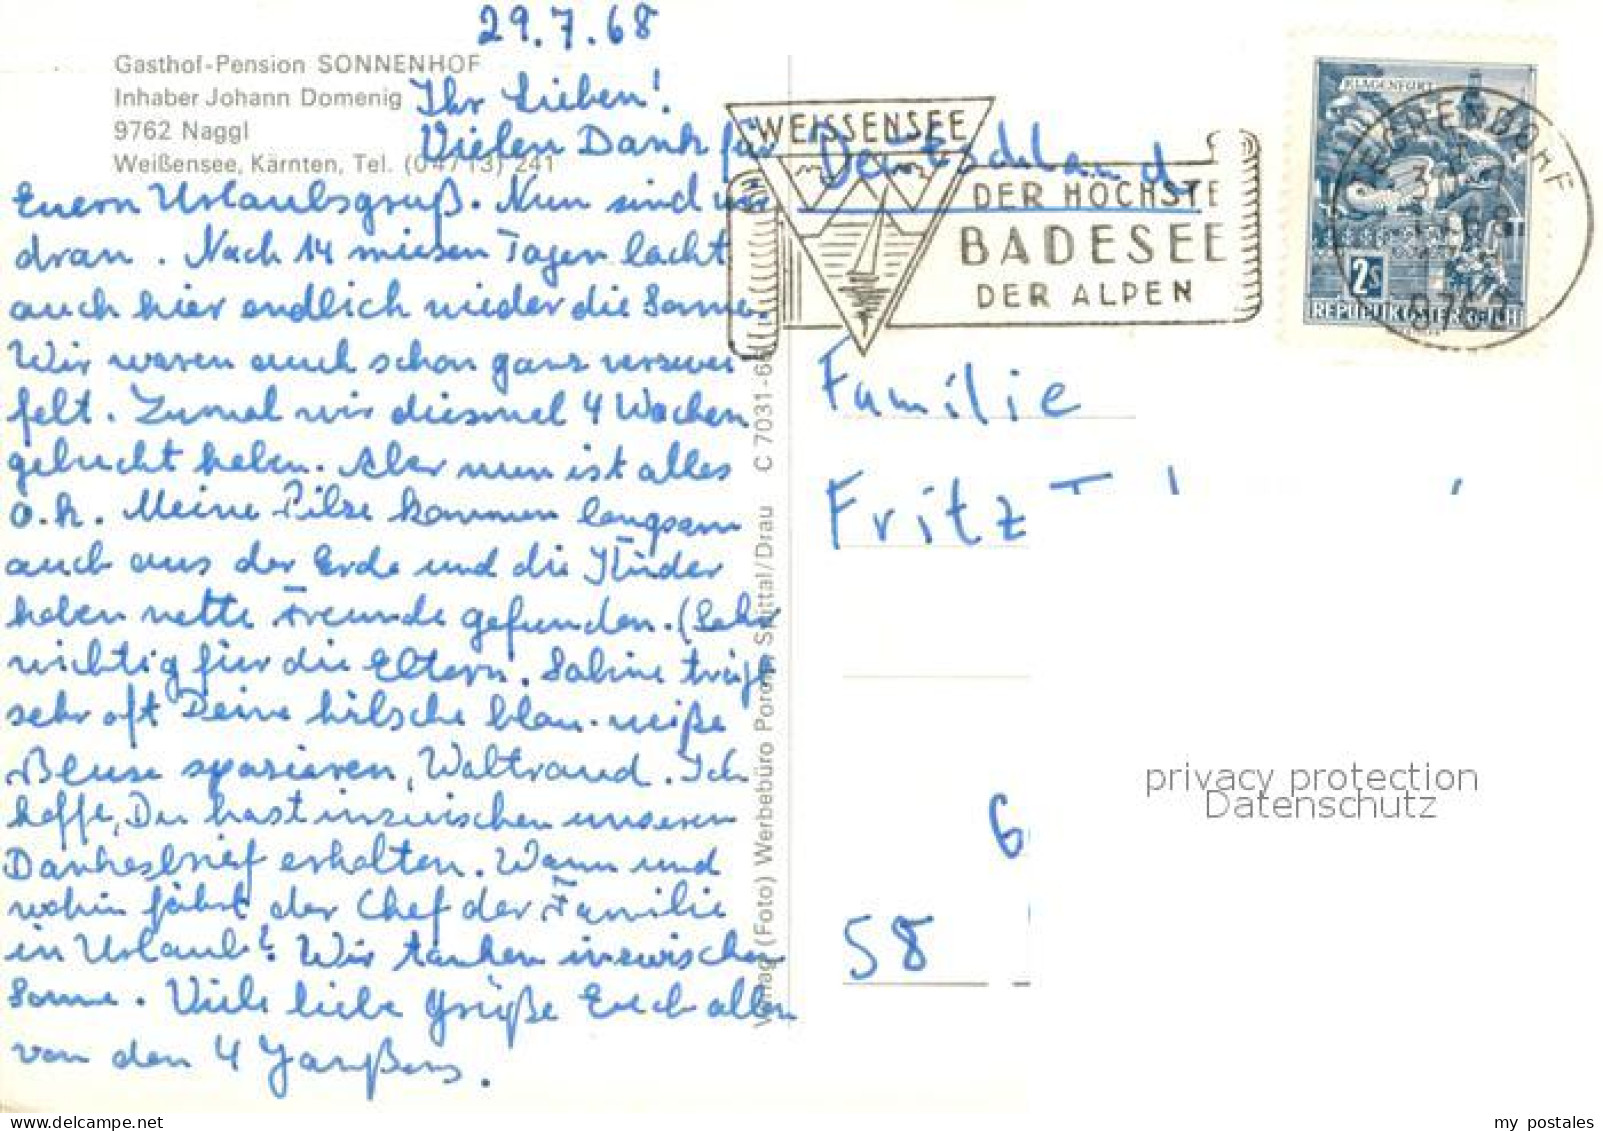 29.7.68
Gasthof-Pension SONNENHOF
Inhaber Johann Domenig
9762 Naggl
Weißensee, Kärnten, Tel. (04713) 241
Ihr Lieben!
Vielen Dank für
Euern Urlaubsgruß. Nun sind wir
dran. Nach 14 miesen Tagen lacht
auch hier endlich wieder die Sonne.
Wir waren auch schon ganz verzwei
felt. Zumal wir diesmal 4 Wochen
gebucht haben. Aber nun ist alles
o.k. Meine Pilze kommen langsam
auch aus der Erde und die Kinder
haben nette Freunde gefunden. (Sehr
wichtig für die Eltern. Sabine trägt
sehr oft Deine hübsche blau-weiße
Bluse spazieren, Waltraud. Ich
hoffe, Du hast inzwischen unseren
Dankesbrief erhalten. Wann und
wohin fährt der Chef der Familie
in Urlaub? Wir tanken inzwischen
Sonne. Viele liebe Grüße Euch allen
von den 4
Verlag (Foto) Werbebüro Poropat Spittal/Drau C 7031-6
WEISSENSEE
DER HÖCHSTE
BADESEE
DER ALPEN
KLAGENFURT
2S
REPUBLIK ÖSTERREICH
TECHENDORF
9762
Deutschland
Familie
Fritz
58
privacy protection
Datenschutz
my postales